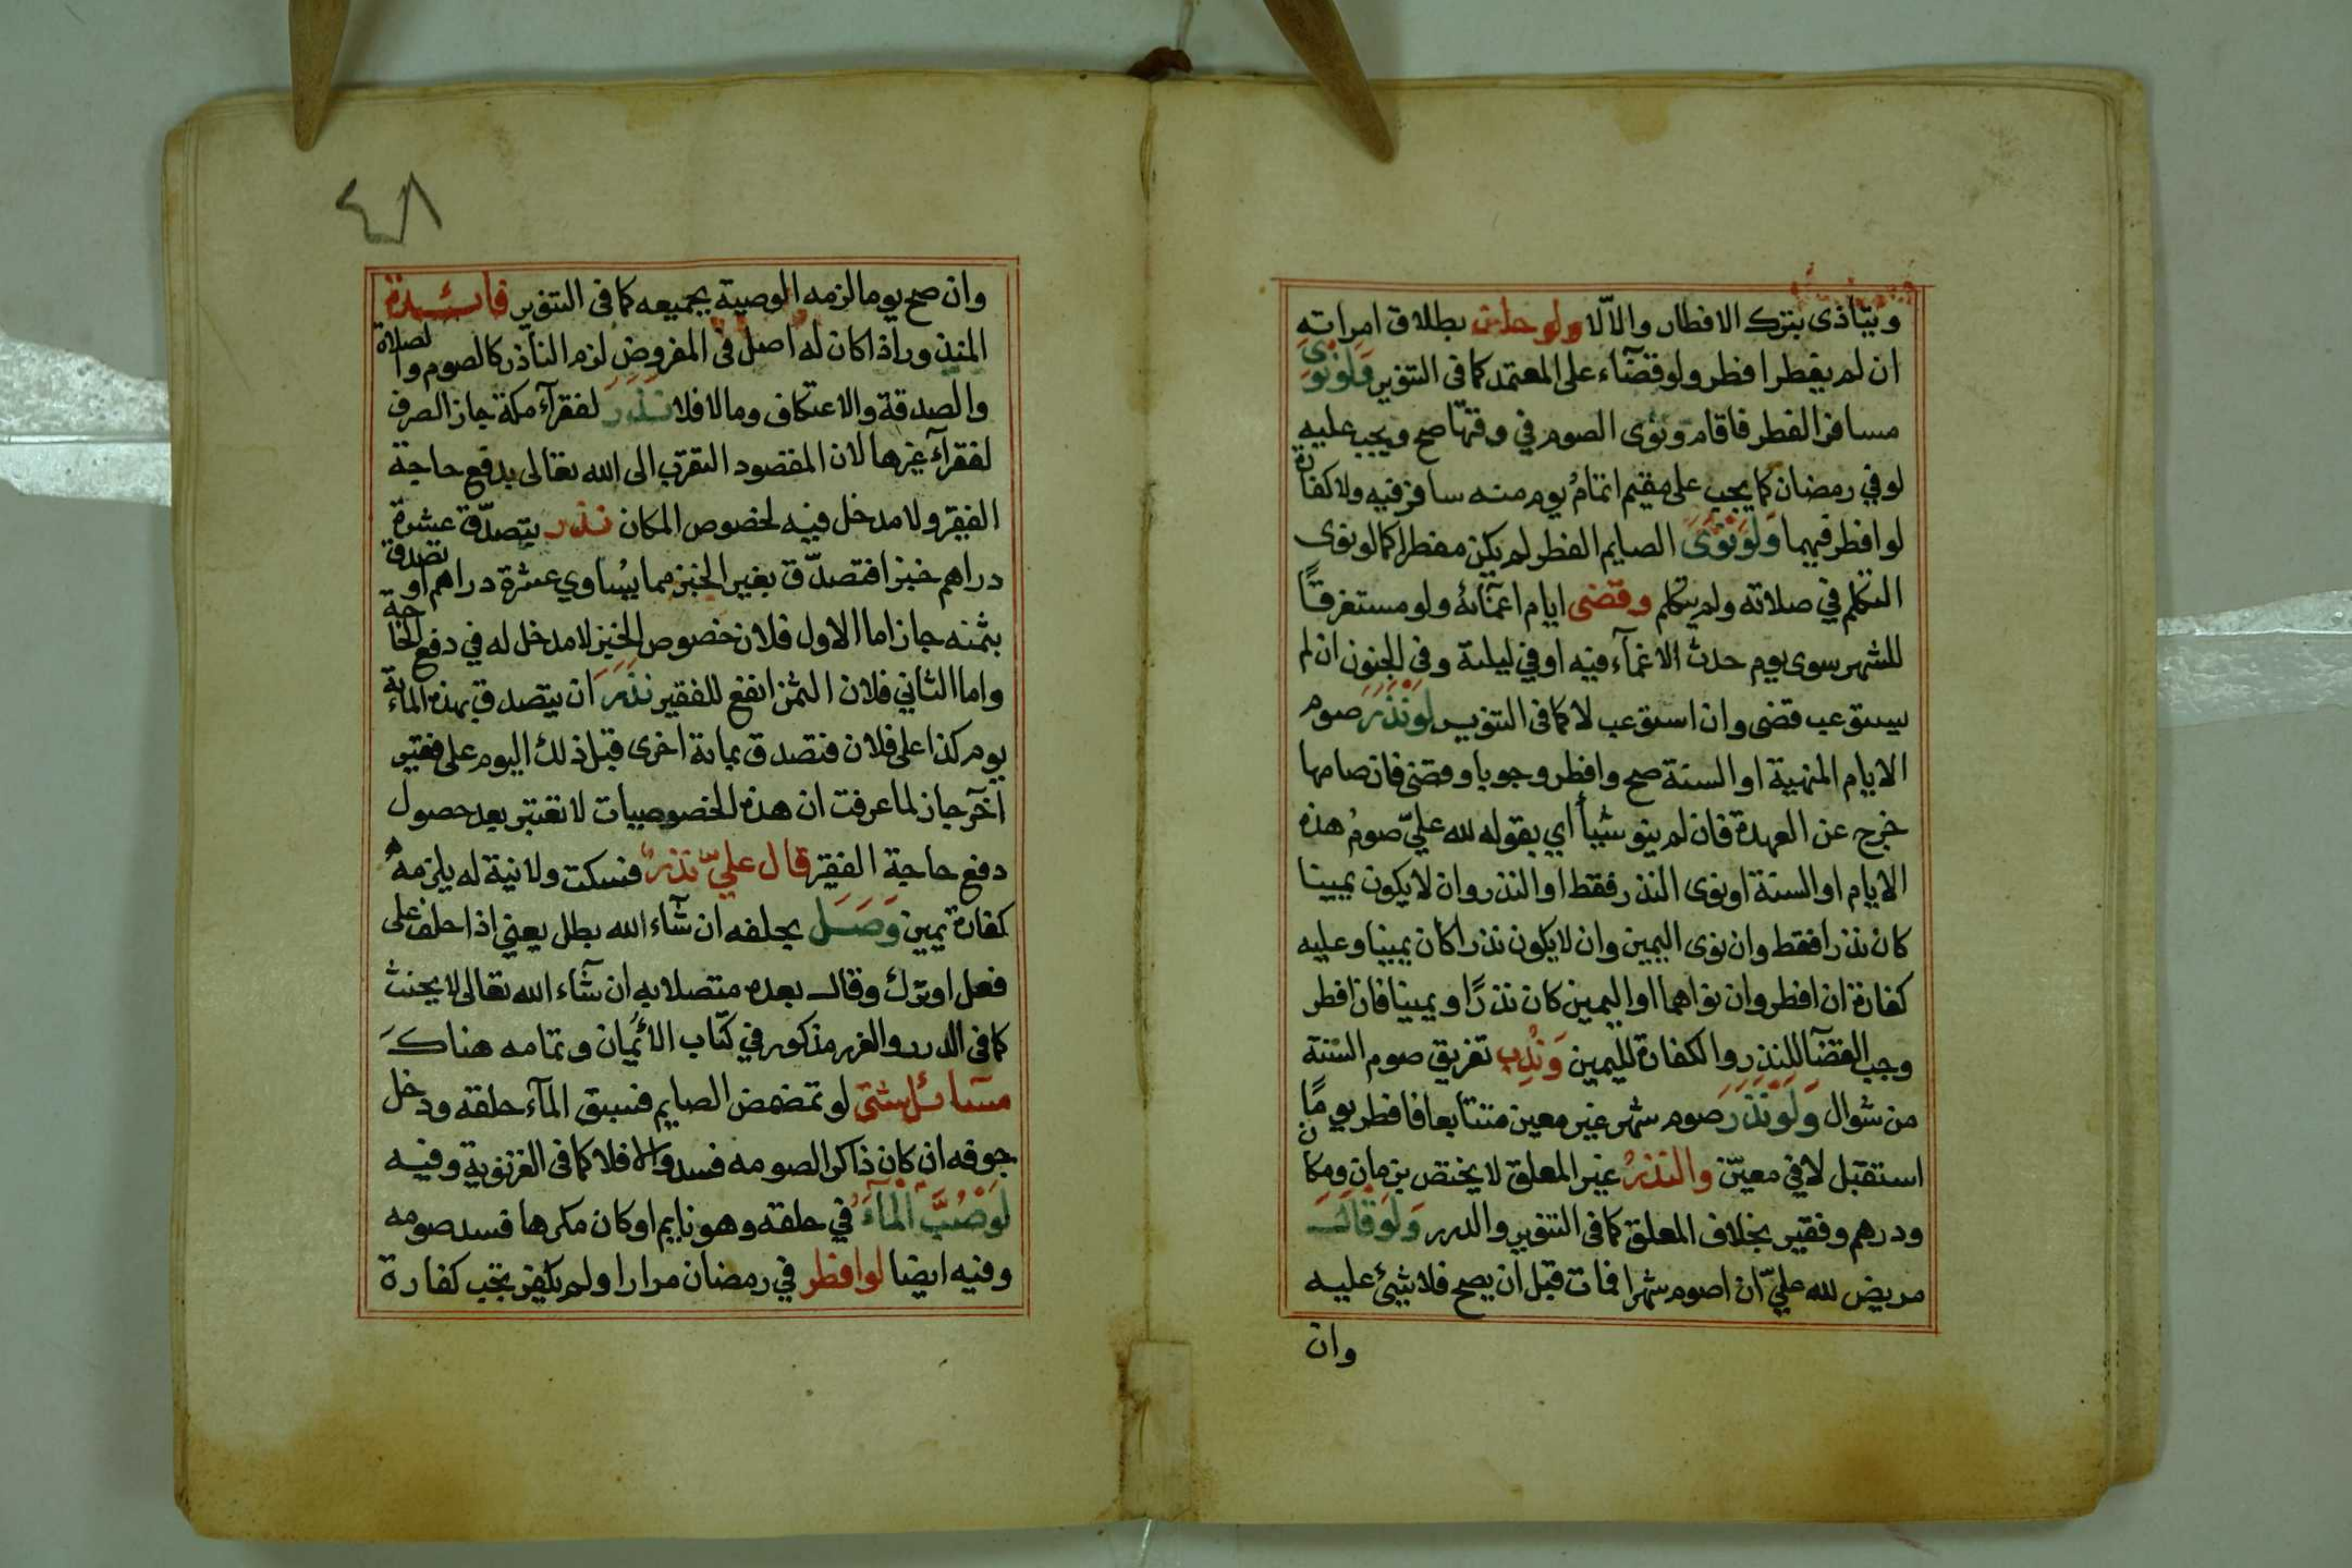 ويتاذى بترك الافطار والا لا ولو حلف بطلاق امراته
ان لم يفطر افطر ولو قضآء على المعتمد كما فى التنوير ولو نوى
مسافر الفطر فاقام ونوى الصوم في وقتها صح ويجب عليه
لو في رمضان كما يجب على مقيم اتمام يوم منه سافر فيه ولا كفارة
لو افطر فيهما ولو نوى الصايم الفطر لم يكن مفطرا كما لو نوى
التكلم في صلاته ولم يتكلم وقضى ايام اغمآئه ولو مستغرقاً
للشهر سوى يوم حدث الاغمآء فيه او في ليلته وفي الجنون ان لم
يستوعب قضى وان استوعب لا كما فى التنوير لو نذر صوم
الايام المنهية او السنة صح وافطر وجوبا وقضى فان صامها
خرج عن العهدة فان لم ينو شيأ أي بقوله لله عليّ صوم هذه
الايام او السنة او نوى النذر فقط او النذر وان لا يكون يمينا
كان نذرا فقط وان نوى اليمين وان لا يكون نذرا كان يمينا وعليه
كفارة ان افطر وان نواهما او اليمين كان نذرًا ويمينا فان افطر
وجب القضآ للنذر والكفارة لليمين وندب تفريق صوم الستة
من شوال ولو نذر صوم شهر غير معين متتابعا فافطر يومًا
استقبل لا في معيّن والنذر غير المعلق لا يختص بزمان ومكان
ودرهم وفقير بخلاف المعلق كما فى التنوير والدرر ولو قال
مريض لله عليّ ان اصوم شهرا فمات قبل ان يصح فلا شئ عليه
وان
٤٨
وان صح يوما لزمه الوصية بجميعه كما فى التنوير فائدة
المنذور اذا كان له اصل فى المفروض لزم الناذر كالصوم والصلاة
والصدقة والاعتكاف وما لا فلا نذر لفقرآء مكة جاز الصرف
لفقرآء غيرها لان المقصود التقرب الى الله تعالى بدفع حاجة
الفقير ولا مدخل فيه لخصوص المكان نذر يتصدّق عشرة
دراهم خبزا فتصدّق بغير الخبز مما يساوي عشرة دراهم او تصدق
بثمنه جاز اما الاول فلان خصوص الخبز لا مدخل له في دفع الحاجة
واما الثاني فلان الثمن انفع للفقير نذر ان يتصدق بهذه الماءية
يوم كذا على فلان فتصدق بماية اخرى قبل ذلك اليوم على فقير
آخر جاز لما عرفت ان هذه الخصوصيات لا تعتبر بعد حصول
دفع حاجة الفقير قال عليّ نذر فسكت ولا نية له يلزمه
كفارة يمين وصل بحلفه ان شآء الله بطل يعني اذا حلف على
فعل او ترك وقال بعده متصلا به ان شآء الله تعالى لا يحنث
كما فى الدرر والغرر مذكور في كتاب الأيمان وتمامه هناك
مسائل شتى لو تمضمض الصايم فسبق المآء حلقه ودخل
جوفه ان كان ذاكرا لصومه فسد والا فلا كما فى الغزنوية وفيه
لو صب المآء في حلقه وهو نايم او كان مكرها فسد صومه
وفيه ايضا لو افطر في رمضان مرارا ولم يكفر تجب كفارة